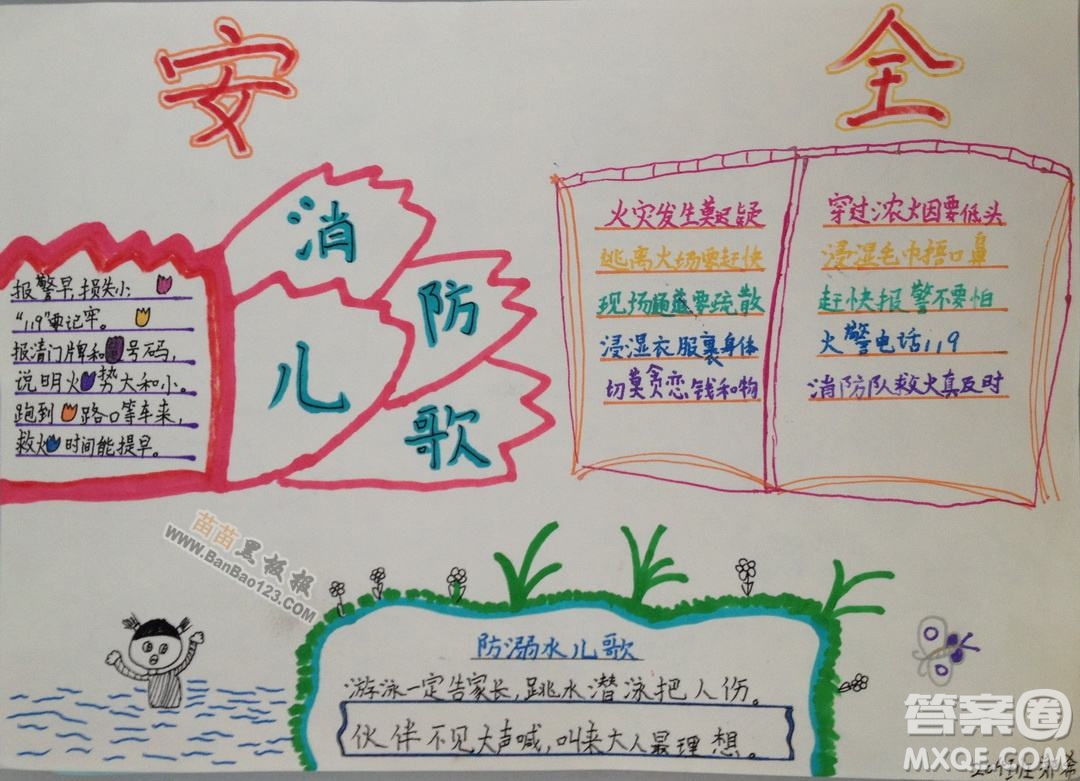 安全
消防儿歌
报警早,损失小;
“119”要记牢。
报清门牌和号码,
说明火势大和小。
跑到路口等车来,
救火时间能提早。
火灾发生莫迟疑
逃离火场要赶快
现场顺道要疏散
浸湿衣服裹身体
切莫贪恋钱和物
穿过浓烟要低头
浸湿毛巾捂口鼻
赶快报警不要怕
火警电话119
消防队救火真及时
苗苗黑板报
www.BanBao123.com
防溺水儿歌
游泳一定告家长,跳水潜泳把人伤。
伙伴不见大声喊,叫来大人最理想。
答案圈
MXQE.COM